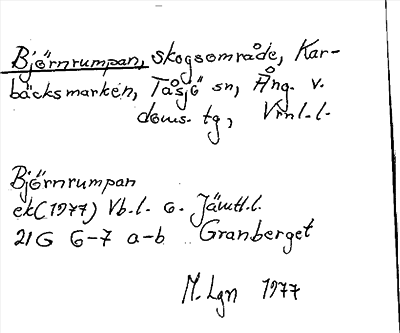 Björnrumpan, skogsområde, Kar-
bäcksmarken, Tåsjö sn, Ång. v.
doms. tg, Vrnl.l.
Björnrumpan
ek(1977) Vb.l. o. Jämtl.l.
21G 6-7 a-b Granberget
M.Lgn 1977